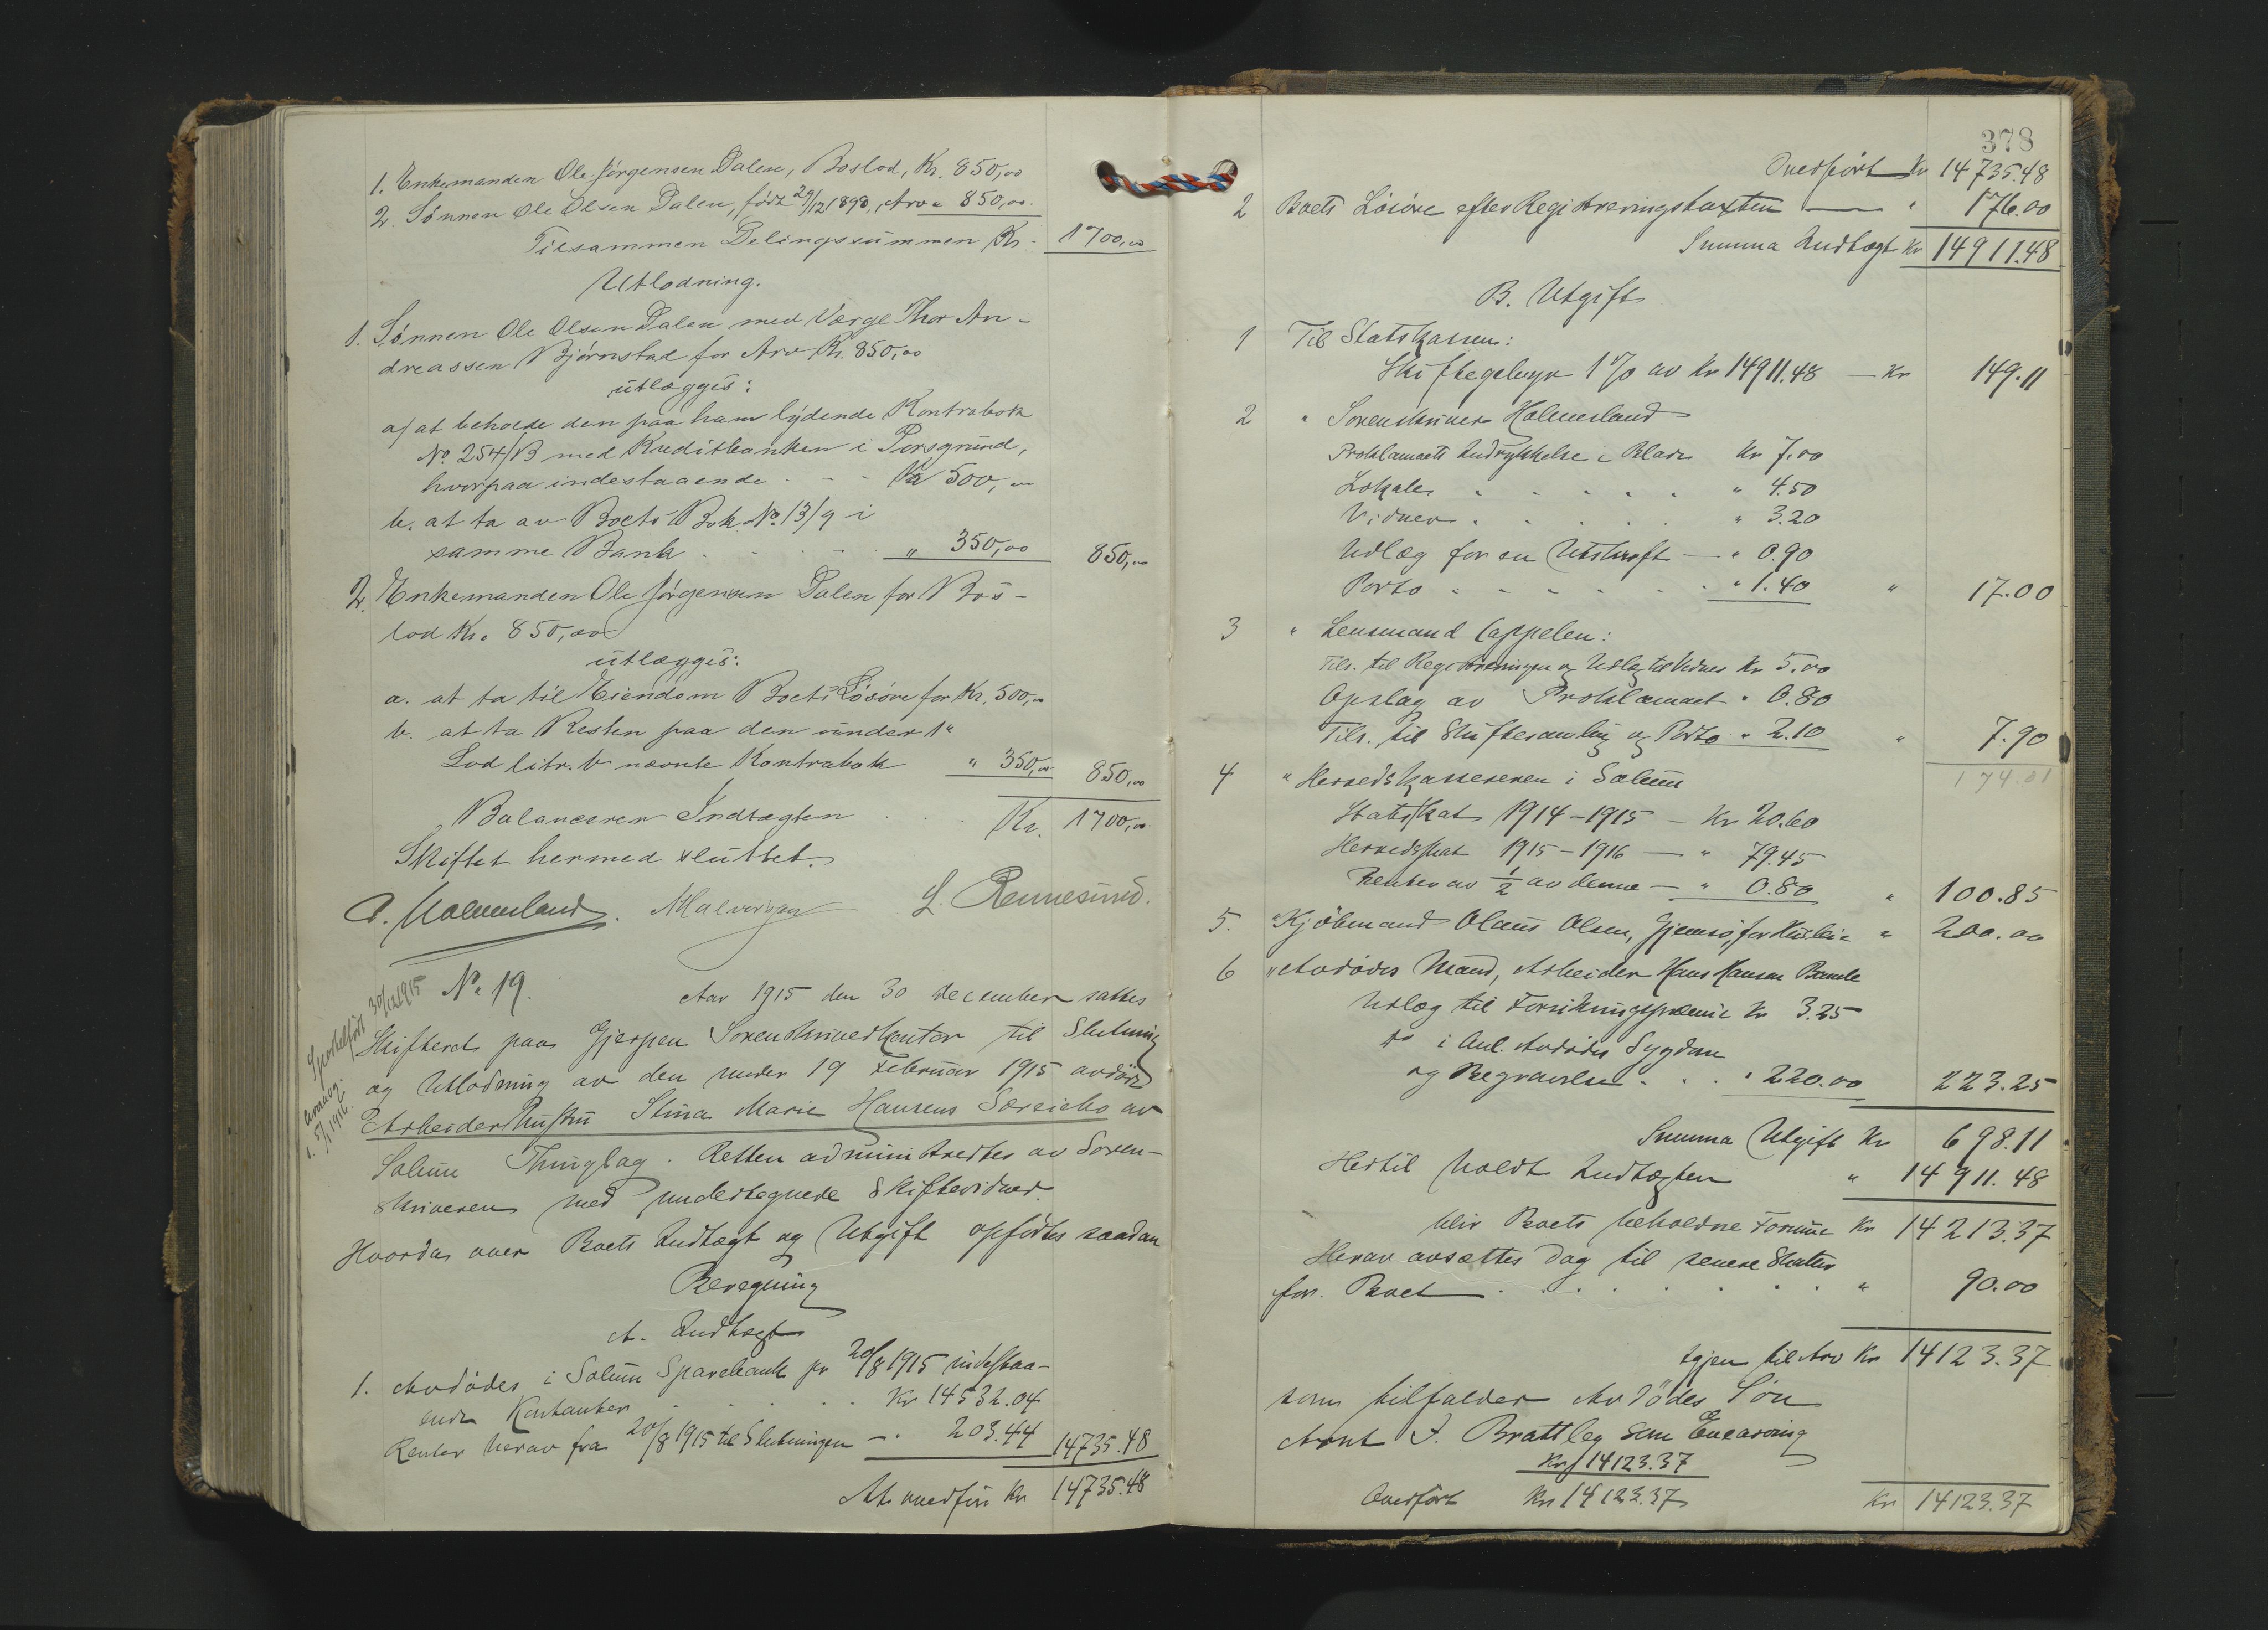 1. Enkemanden Ole Jørgensen Dalen, Boslod, Kr. 850,00
2. Sønnen Ole Olsen Dalen, født 29/12 1890, Arv " 850,00.
Tilsammen Delingssummen Kr. 1700,00
Utlodning.
1. Sønnen Ole Olsen Dalen med Værge Thor An-
dreassen Bjørnstad for Arv Kr. 850,00
utlægges:
a/ at beholde den paa ham lydende Kontrabok
No. 254/B med Kreditbanken i Porsgrund,
hvorpaa indestaaende - - Kr 500,00
b. at ta av Boets Bok No. 13/9 i
samme Bank . . . . " 350,00 850,00
2. Enkemanden Ole Jørgensen Dalen for Bos-
lod Kr. 850,00
utlægges:
a. at ta til Eiendom Boets Løsøre for Kr. 500,00
b. at ta Resten paa den under 1"
Lod litr. b nævnte Kontrabok " 350,00 850,00
Balancerer Indtægten . . . Kr. 1700,00.
Skiftet hermed sluttet.
A. Holmesland. A Halvorsen L. Rennesund.
Sportelført 30/12 1915
1. 5/1 1916.
No. 19. Aar 1915 den 30 december sattes
Skifteret paa Gjerpen Sorenskriverkontor til Slutning
og Utlodning av den under 19 Februar 1915 avdøde
Arbeiderhustru Stina Marie Hansens Særeiebo av
Solum Thinglag. Retten administreredes av Soren-
skriveren med undertegnede Skiftevidner.
Hvorda over Boets Indtægt og Utgift opførtes saadan
Beregning
A. Indtægt
1. Avdødes i Solum Sparebank pr 20/8 1915 indestaa-
ende Kontanter . . . . Kr 14532.04
Renter herav fra 20/8 1915 til Slutningen - " 203.44 14735.48
At overføre Kr 14735.48
378
Overført Kr 14735.48
2 Boets Løsøre efter Registreringstaxten " 176.00
Summa Indtægt Kr 14911.48
B. Utgift
1 Til Statskassen:
Skiftegebyr 1% av Kr 14911.48 - Kr 149.11
2 " Sorenskriver Holmesland
Proklamaets Indrykkelse i Blade Kr 7.00
Lokale . . . . . " 4.50
Vidner . . . . . " 3.20
Utlæg for en Utskrift - " 0.90
Porto . . . . . " 1.40 " 17.00
3 " Lensmand Cappelen:
Tils. til Registreringen og Utlæg til Vidner Kr 5.00
Opslag av Proklamaet " 0.80
Tils. til Skiftesamling og Porto " 2.10 " 7.90
174.01
4 " Herredskassereren i Solum
Statsskat 1914-1915 - Kr 20.60
Herredsskat 1915-1916 - " 79.45
Renter av 1/2 av denne - " 0.80 " 100.85
5. " Kjøbmand Olaus Olsen, Gjemsø, for Husleie " 200.00
6 " Avdødes Mand, Arbeider Hans Hansen Bamle
Utlæg til Forsikringspræmie Kr 3.25
do i Anl. Avdødes Sygdom
og Begravelse . . . " 220.00 223.25
Summa Utgift Kr 698.11
Hertil holdt Indtægten " 14911.48
bliv Boets beholdne Formue Kr 14213.37
Herav avsættes dog til senere Skatter
for Boet . . . . . . . " 90.00
Igjen til Arv Kr 14123.37
som tilfalder Avdødes Søn
Arnt I. Brattleg som Enearving
Kr 14123.37
Overført Kr 14123.37 Kr 14123.37